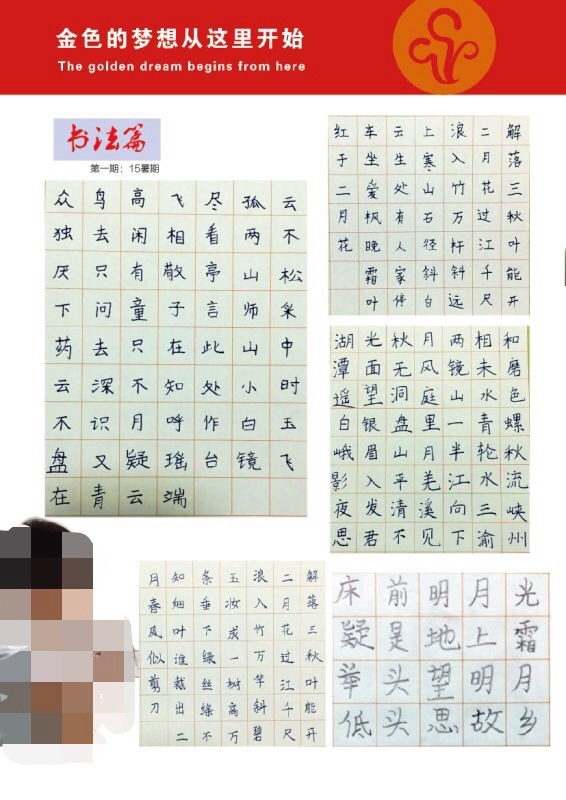 金色的梦想从这里开始
The golden dream begins from here
书法篇
第一期：15暑期
众鸟高飞尽孤云
独去闲相看两不
厌只有敬亭山松
下问童子言师采
药去只在此山中
云深不知处小时
不识月呼作白玉
盘又疑瑶台镜飞
在青云端
解落三秋叶能开
二月花过江千尺
浪入竹万杆斜远
上寒山石径斜白
云生处有人家停
车坐爱枫晚霜叶
红于二月花
湖光秋月两相和
潭面无风镜未磨
遥望洞庭山水色
白银盘里一青螺
峨眉山月半轮秋
影入平羌江水流
夜发清溪向三峡
思君不见下渝州
解落三秋叶能开
二月花过江千尺
浪入竹万竿斜碧
玉妆成一树高万
条垂下绿丝绦不
知细叶谁裁出二
月春风似剪刀
床前明月光
疑是地上霜
举头望明月
低头思故乡